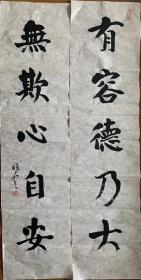 有容德乃大
無欺心自安